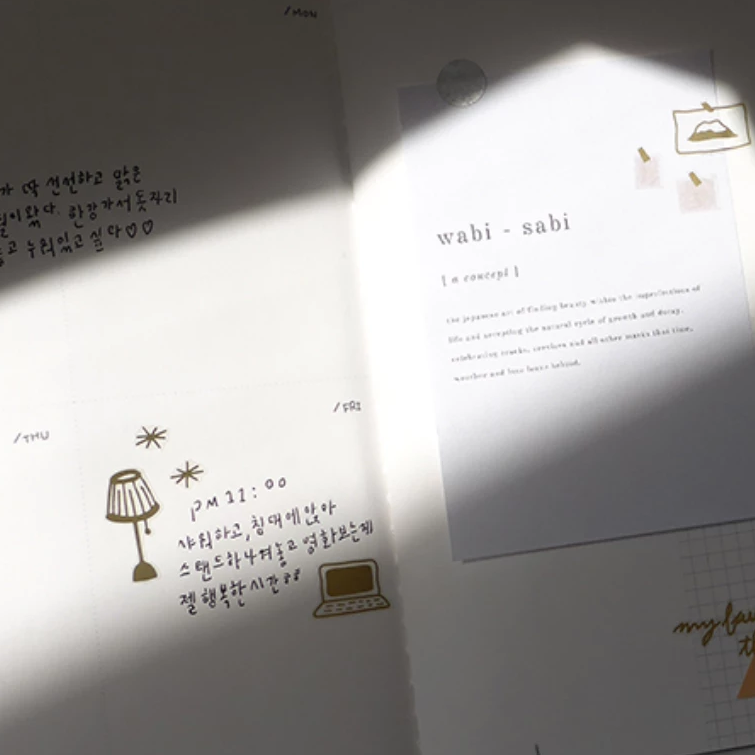 /MON
가 딱 선선하고 맑은
날이 왔다. 한강가서 돗자리
놓고 누워있고 싶다♡♡
/THU
/FRI
PM 11:00
샤워하고, 침대에 앉아
스탠드하나 켜놓고 영화보는게
젤 행복한 시간
wabi - sabi
[ a concept ]
the japanese art of finding beauty within the imperfections of
life and accepting the natural cycle of growth and decay.
celebrating cracks, crevices and all other marks that time,
weather and love leave behind.
my